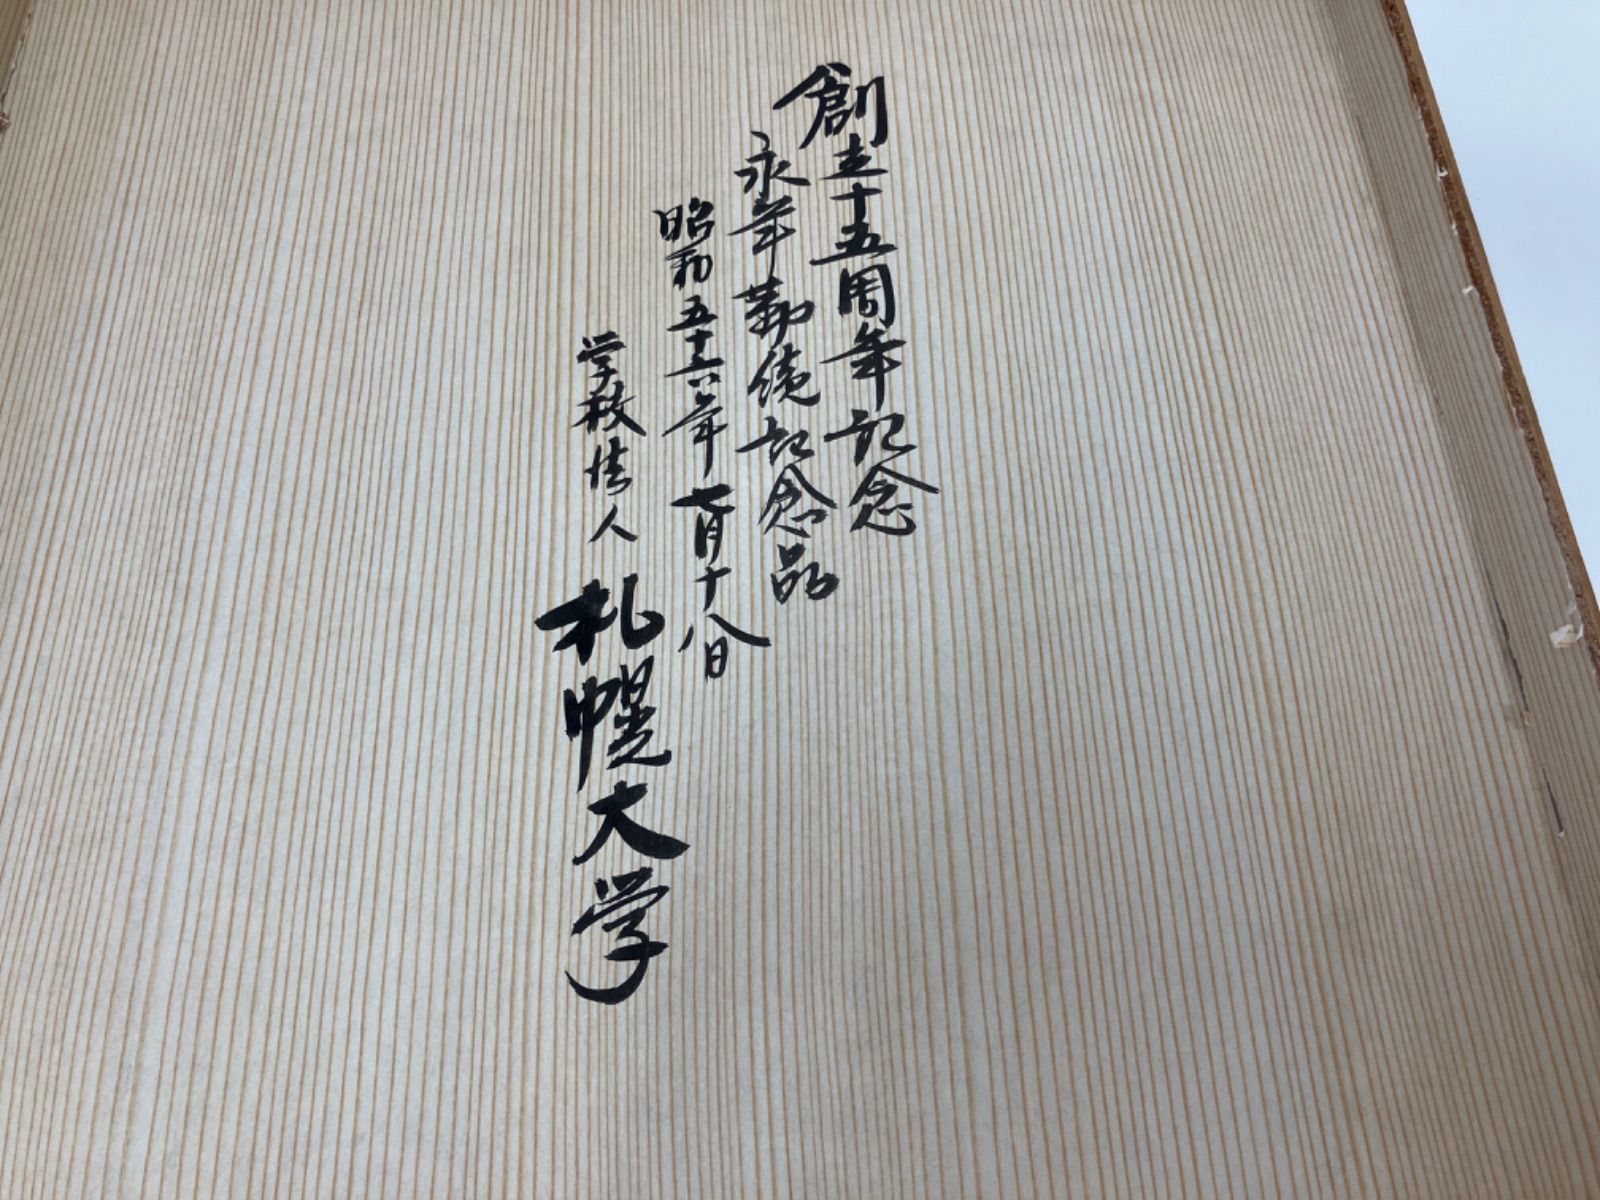 創立十五周年記念
永年勤続記念品
昭和五十六年七月十八日
学校法人 札幌大学